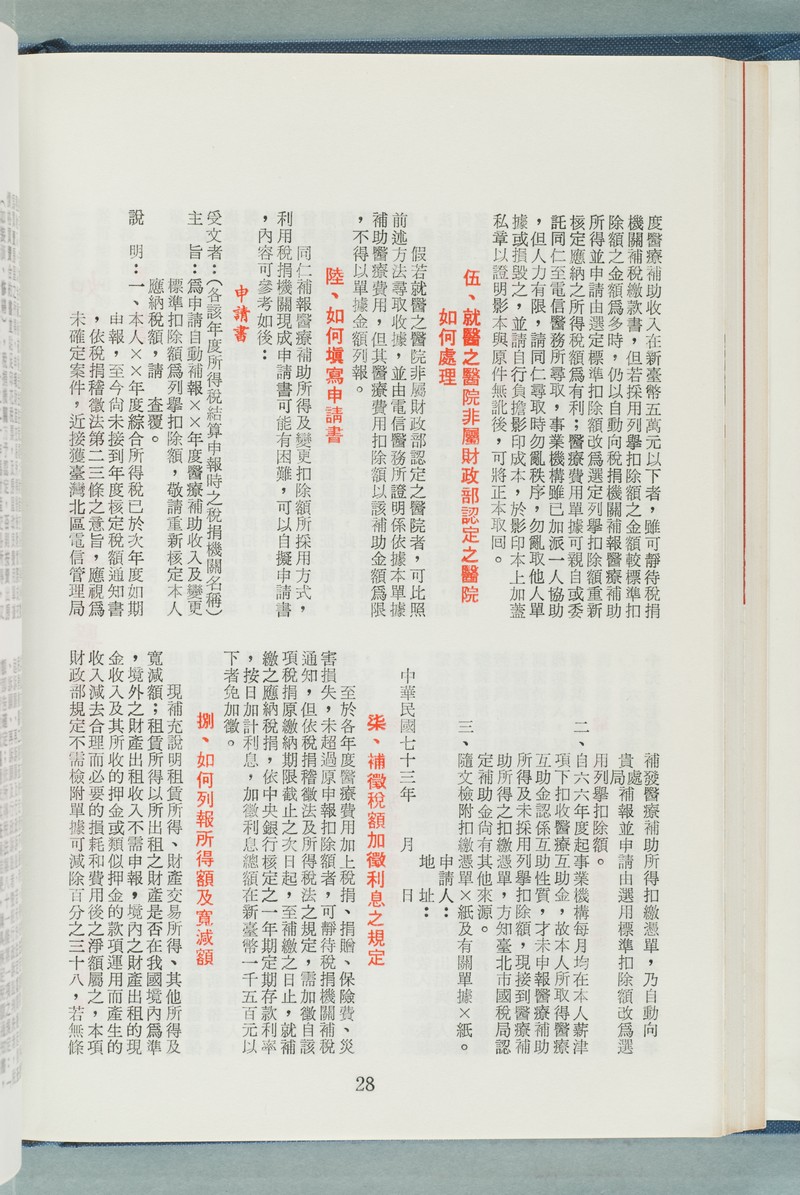 度醫療補助收入在新臺幣五萬元以下者，雖可靜待稅捐
機關補稅繳款書，但若採用列舉扣除額之金額較標準扣
除額之金額爲多時，仍以自動向稅捐機關補報醫療補助
所得並申請由選定標準扣除額改爲選定列舉扣除額重新
核定應納之所得稅額爲有利；醫療費用單據可親自或委
託同仁至電信醫務所尋取，事業機構雖已加派一人協助
，但人力有限，請同仁尋取時勿亂秩序，勿亂取他人單
據或損毀之，並請自行負擔影印成本，於影印本上加蓋
私章以證明影本與原件無訛後，可將正本取囘。
伍、就醫之醫院非屬財政部認定之醫院
如何處理
假若就醫之醫院非屬財政部認定之醫院者，可比照
前述方法尋取收據，並由電信醫務所證明係依據本單據
補助醫療費用，但其醫療費用扣除額以該補助金額爲限
，不得以單據金額列報。
陸、如何塡寫申請書
同仁補報醫療補助所得及變更扣除額所採用方式，
利用稅捐機關現成申請書可能有困難，可以自擬申請書
，內容可參考如後：
申請書
受文者：（各該年度所得稅結算申報時之稅捐機關名稱）
主　旨：爲申請自動補報××年度醫療補助收入及變更
標準扣除額爲列擧扣除額，敬請重新核定本人
應納稅額，請　査覆。
說　明：一、本人××年度綜合所得稅已於次年度如期
申報，至今尙未接到年度核定稅額通知書
，依稅捐稽徵法第二三條之意旨，應視爲
未確定案件，近接獲臺灣北區電信管理局
補發醫療補助所得扣繳憑單，乃自動向
貴處
局補報並申請由選用標準扣除額改爲選
用列擧扣除額。
二、自六六年度起事業機構每月均在本人薪津
項下扣收醫療互助金，故本人所取得醫療
互助金認係互助性質，才未申報醫療補助
所得及未採用列擧扣除額，現接到醫療補
助所得之扣繳憑單，方知臺北市國稅局認
定補助金尙有其他來源。
三、隨文檢附扣繳憑單×紙及有關單據×紙。
申請人：
地　址：
中華民國七十三年　　月　　日
柒、補徵稅額加徵利息之規定
至於各年度醫療費用加上稅捐、捐贈、保險費、災
害損失，未超過原申報扣除額者，可靜待稅捐機關補稅
通知，但依稅捐稽徵法及所得稅法之規定，需加徵自該
項稅捐原繳納期限截止之次日起，至補繳之日止，就補
繳之應納稅捐，依中央銀行核定之一年期定期存款利率
，按日加計利息，加徵利息總額在新臺幣一千五百元以
下者免加徵。
捌、如何列報所得額及寬減額
現補充說明租賃所得、財產交易所得、其他所得及
寬減額；租賃所得以所出租之財產是否在我國境內爲準
，境外之財產出租收入不需申報，境內之財產出租的現
金收入及其所收的押金或類似押金的款項運用而產生的
收入減去合理而必要的損耗和費用後之淨額屬之，本項
財政部規定不需檢附單據可減除百分之三十八，若無條
28